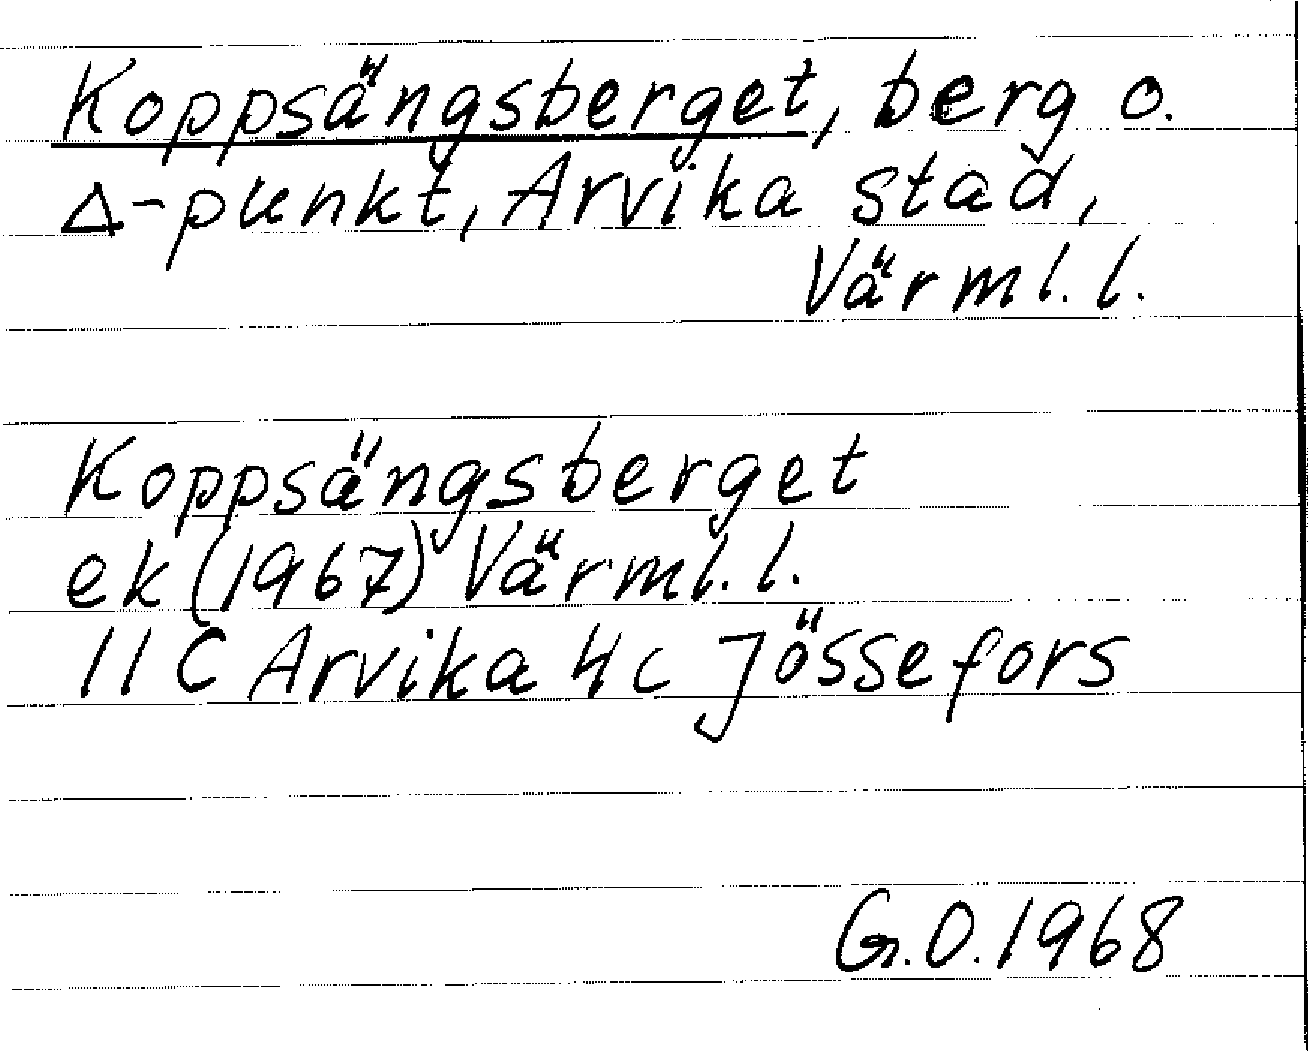 Koppsängsberget, berg o.
Δ-punkt, Arvika stad,
Värml. l.
Koppsängsberget
ek (1967) Värml. l.
11 C Arvika 4c Jössefors
G.O. 1968